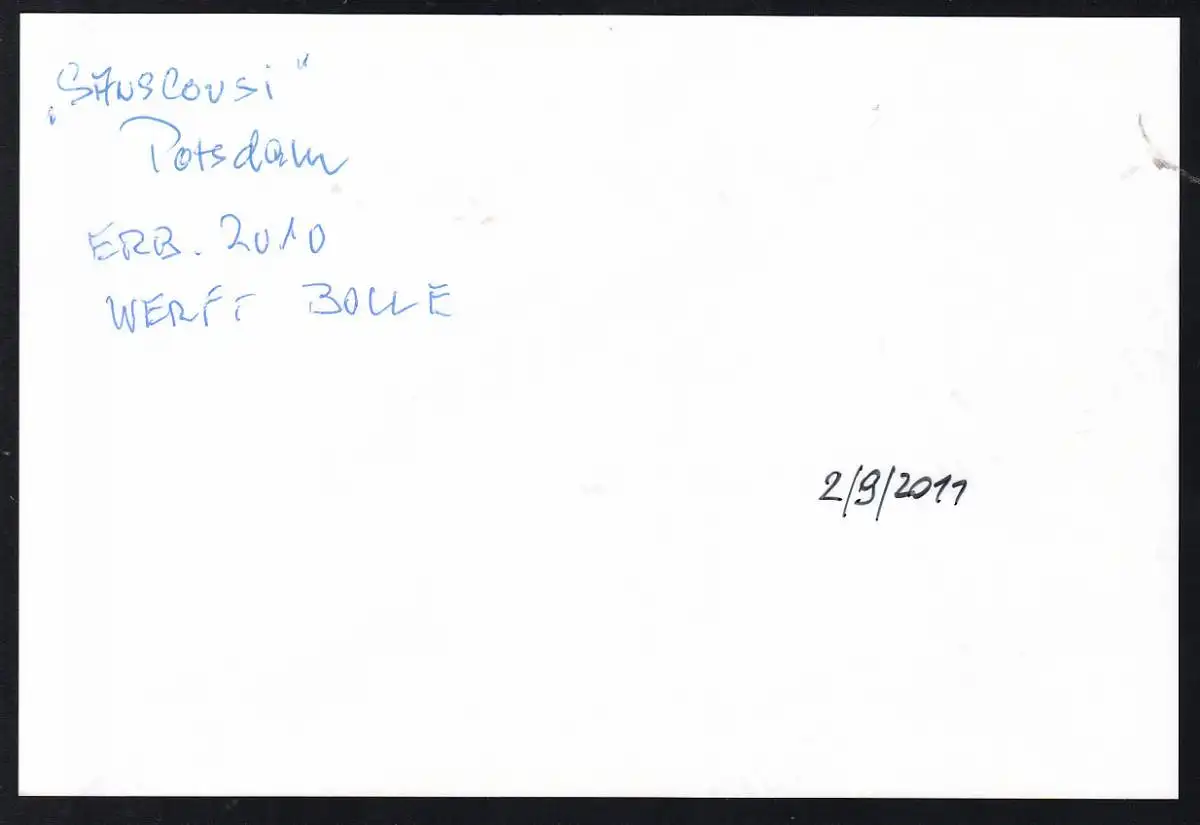 „SANSCOUSI"
Potsdam
ERB. 2010
WERFT BOLLE
2/9/2011